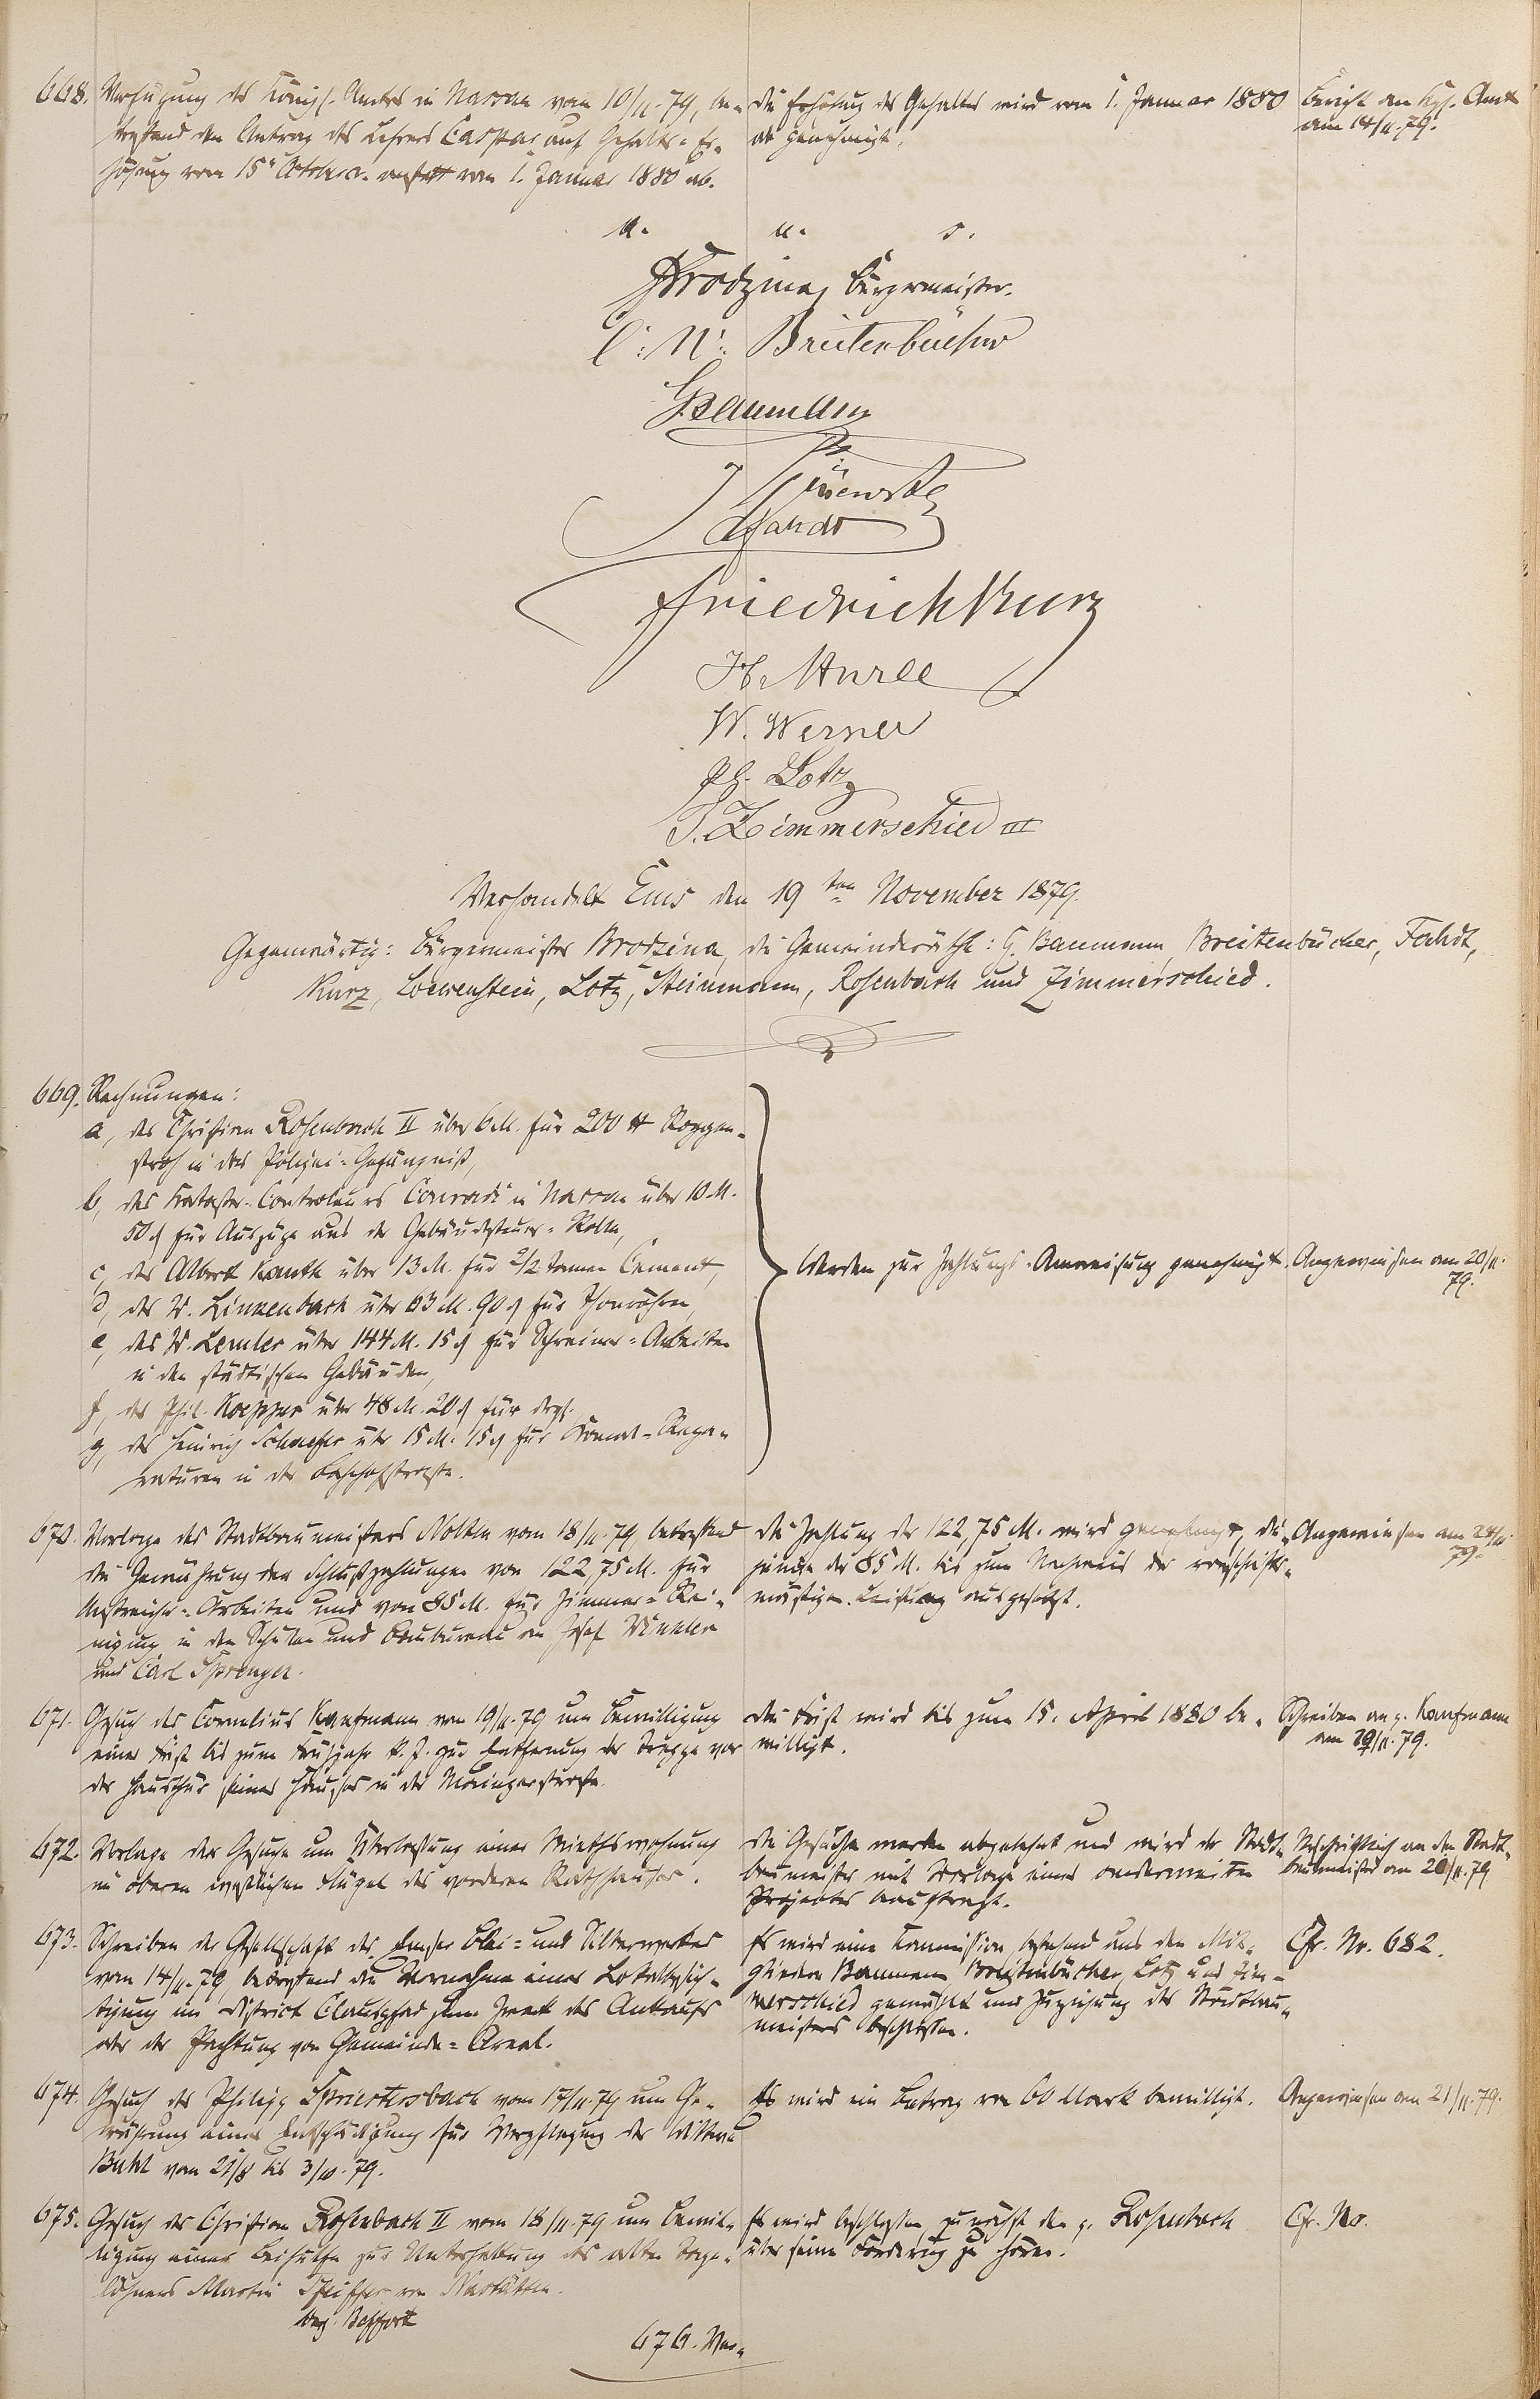 668. Verfügung des Königl. Amtes in Nassau vom 10/11. 79, be-
treffend den Antrag des Lehrers Caspar auf Gehalts-Er-
höhung vom 15t October anstatt vom 1. Januar 1880 ab.
Die Erhöhung des Gehaltes wird vom 1. Januar 1880
ab genehmigt.
Bericht an Kgl. Amt
am 14/11. 79.
a. u. s.
Brodzina, Bürgermeister.
C: N: Breitenbücher
G Baumann
Fahdt
Friedrich Kurz
W. Werner
Ph. Lotz
P. Zimmerschied III
Verhandelt Ems den 19ten November 1879.
Gegenwärtig: Bürgermeister Brodzina, die Gemeinderäthe: G. Baumann, Breitenbücher, Fahdt,
Kurz, Loewenstein, Lotz, Steinmann, Rosenbach und Zimmerschied.
669. Rechnungen:
a, des Christian Rosenbach II über 6 M. für 200 ℔ Roggen-
stroh in das Polizei-Gefängniß,
b, des Kataster-Controleurs Conradi in Nassau über 10 M.
50 ₰ für Auszüge aus der Gebäudesteuer-Rolle,
c, des Albert Kauth über 13 M. für 2/2 Tonnen Cement,
d, des W. Linkenbach über 63 M. 90 ₰ für Thonröhren,
e, des W. Lemler über 144 M. 15 ₰ für Schreiner-Arbeiten
in den städtischen Gebäuden,
f, des Phil. Koepper über 48 M. 20 ₰ für dergl.
g, des Heinrich Schaefer über 15 M. 15 ₰ für Kanal-Repa-
raturen in der
Werden zur Zahlungs-Anweisung genehmigt.
Angewiesen am 20/11.
79.
670. Vorlage des Stadtbaumeisters Nolten vom 18/11. 79, betreffend
die Gewährung der Schlußzahlungen von 122,75 M. für
Anstreicher-Arbeiten und von 85 M. für Zimmer-Rei-
nigung in den Schulen und Baubureau an Josef Winkler
und Carl Sprenger.
Die Zahlung der 122,75 M. wird genehmigt, die-
jenige der 85 M. bis zum Nachweis der vorschrifts-
mäßigen Leistung ausgesetzt.
Angewiesen am 24/11.
79.
671. Gesuch des Cornelius Kaufmann vom 19/11. 79 um Bewilligung
einer Frist bis zum Frühjahr k. J. zur Entfernung der Treppe vor
der Hausthür seines Hauses in der Mainzerstraße.
Die Frist wird bis zum 15. April 1880 be-
willigt.
Schreiben an p. Kaufmann
am 20/11. 79.
672. Vorlage der Gesuche um Überlassung einer Miethswohnung
im oberen westlichen Flügel des vorderen Rathhauses.
Die Gesuche werden abgelehnt und wird der Stadt-
baumeister mit Vorlage eines anderweiten
Projectes beauftragt.
Abschriftlich an den Stadt-
baumeister am 20/11. 79
673. Schreiben der Gesellschaft des Emser Blei- und Silberwerkes
vom 14/11. 79, betreffend die Vornahme einer Lokalbesich-
tigung im District Clauspfad zum Zweck des Ankaufs
oder der Pachtung von Gemeinde-Areal.
Es wird eine Commission, bestehend aus den Mit-
gliedern Baumann, Breitenbücher, Lotz und Zim-
merschied gewählt und Zuziehung des Stadtbau-
meisters beschlossen.
Cfr. No. 682.
674. Gesuch des Philipp Spriestersbach vom 17/11. 79 um Ge-
währung einer Entschädigung für Verpflegung der Wittwe
Buhl vom 21/8 bis 3/10. 79.
Es wird ein Betrag von 60 Mark bewilligt.
Angewiesen am 21/11. 79.
675. Gesuch des Christian Rosenbach II vom 18/11. 79 um Bewil-
ligung einer Beihülfe zur Unterhaltung des alten Tage-
löhners Martin Pfeiffer von Nastätten.
Es wird beschlossen zunächst den p. Rosenbach
über seine Forderung zu hören.
Cfr. No.
676. Ver-